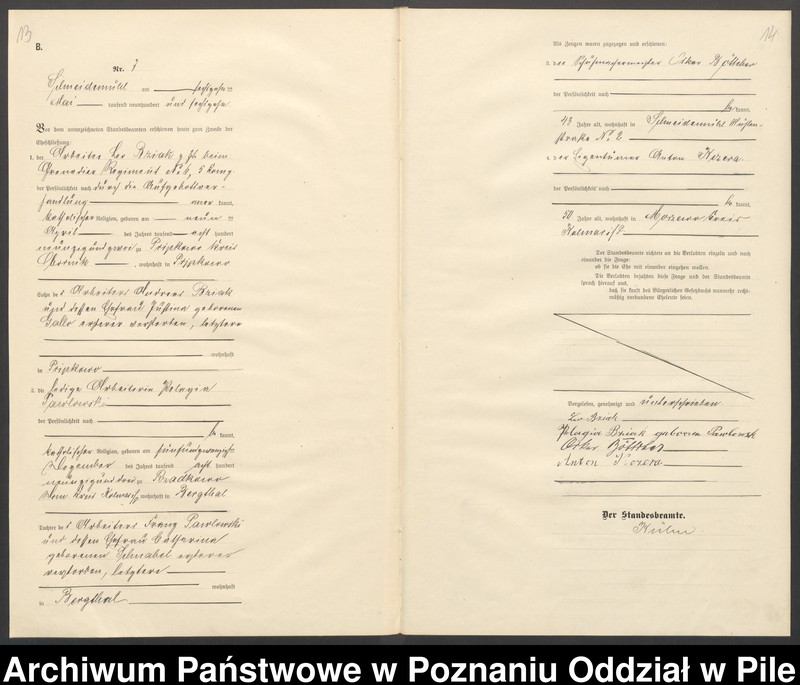 13
B.
Nr. 7
Schneidemühl am sechszehnten
Mai tausend neunhundert und sechszehn
Vor dem unterzeichneten Standesbeamten erschienen heute zum Zwecke der
Eheschließung:
1. der Arbeiter Leo Bziak z. Zt. beim
Grenadier Regiment No. 6, 5 Komp.
der Persönlichkeit nach durch die Aufgebotsver-
handlung anerkannt,
katholischer Religion, geboren am neunten
April des Jahres tausend acht hundert
neunzig und zwei zu
Obornik, wohnhaft in
Sohn des Arbeiters Andreas Bziak
und dessen Ehefrau Justina geborenen
Gallo ersterer verstorben, letztere
wohnhaft
in
2. die ledige Arbeiterin Pelagia
Pawlowski
der Persönlichkeit nach
bekannt,
katholischer Religion, geboren am fünfundzwanzigsten
Dezember des Jahres tausend acht hundert
neunzig und drei zu
dem Kreis Kolmar i/P wohnhaft in Bergthal
Tochter des Arbeiters Franz Pawlowski
und dessen Ehefrau Catharina
geborenen Schnabel ersterer
verstorben, letztere
wohnhaft
in Bergthal
14
Als Zeugen waren zugezogen und erschienen:
3. der Schuhmachermeister Oskar Böttcher
der Persönlichkeit nach
bekannt,
43 Jahre alt, wohnhaft in Schneidemühl
straße No. 2
4. der Eigentümer Anton Kozera
der Persönlichkeit nach
bekannt,
50 Jahre alt, wohnhaft in Kreis
Kolmar i/P
Der Standesbeamte richtete an die Verlobten einzeln und nach
einander die Frage:
ob sie die Ehe mit einander eingehen wollen.
Die Verlobten bejahten diese Frage und der Standesbeamte
sprach hierauf aus,
daß sie kraft des Bürgerlichen Gesetzbuchs nunmehr recht-
mäßig verbundene Eheleute seien.
Vorgelesen, genehmigt und unterschrieben
Leo Bziak
Pelagia Bziak geborene Pawlowski
Oskar Böttcher
Anton Kozera
Der Standesbeamte.
Archiwum Państwowe w Poznaniu Oddział w Pile